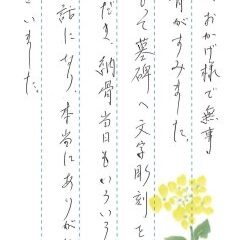 、おかげ様で無事
がすみました。
って墓碑へ文字彫刻を
だき、納骨当日もいろいろ
話になり、本当にありが
いました。